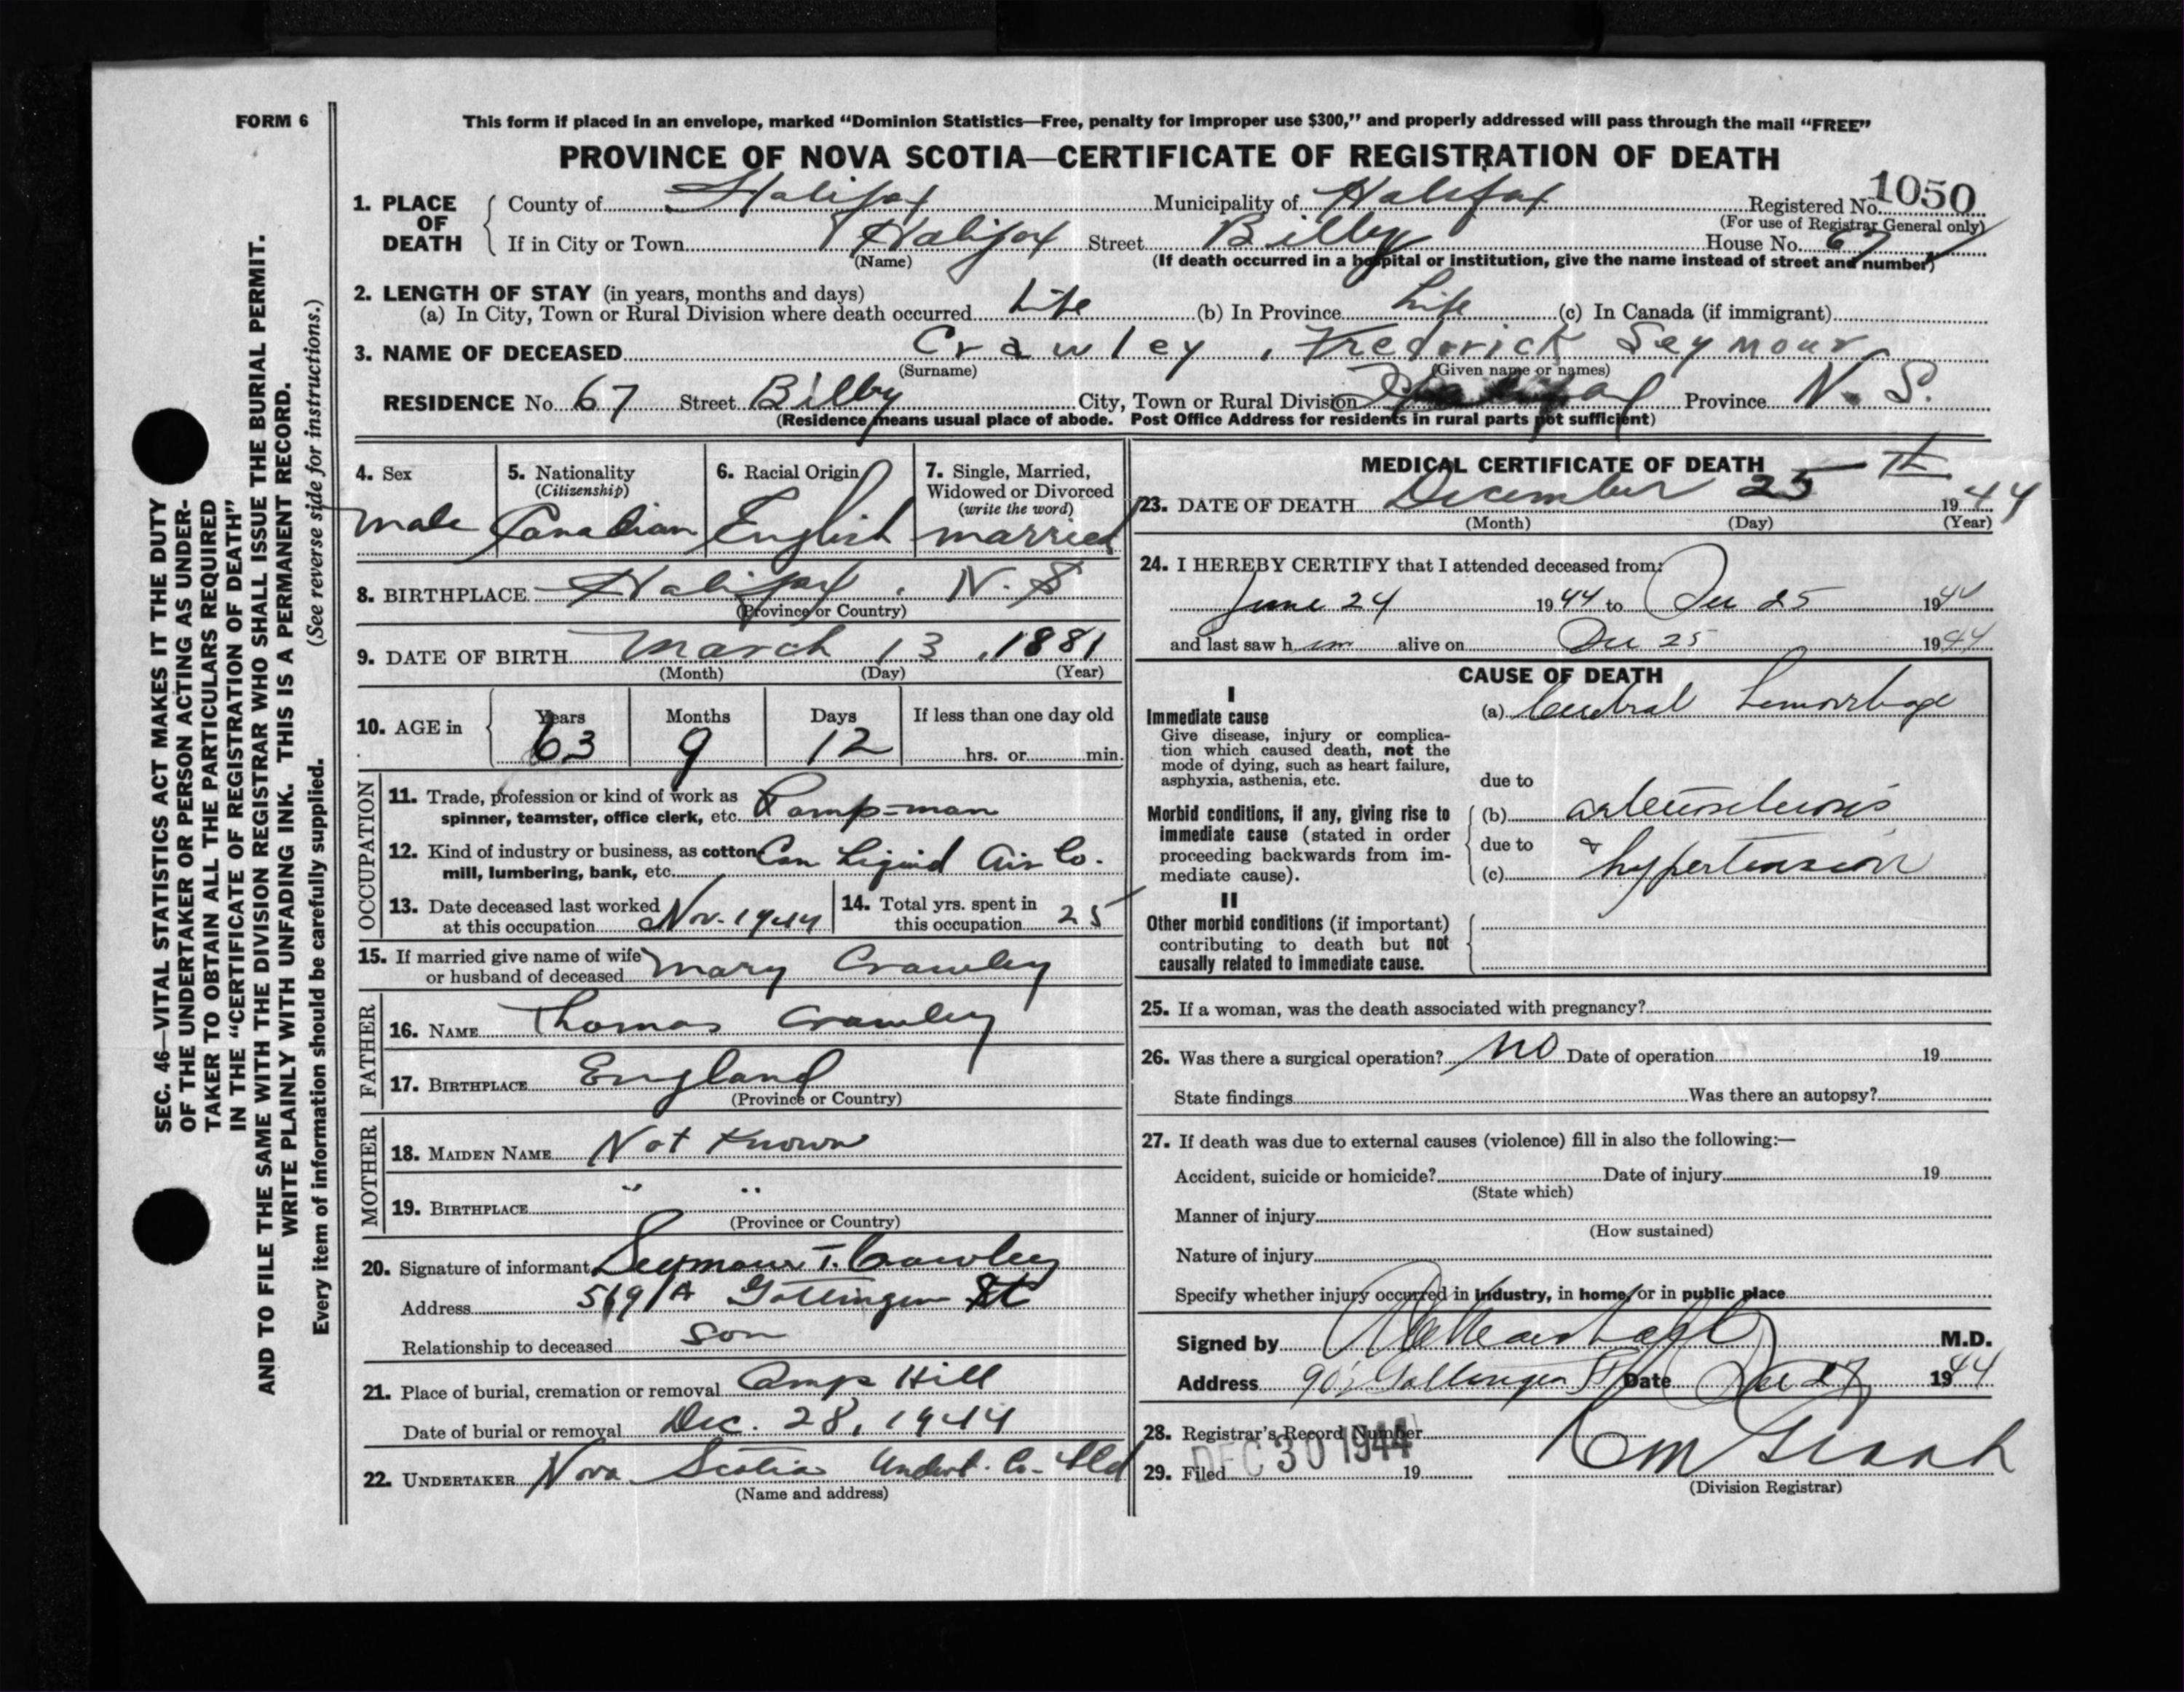 FORM 6
This form if placed in an envelope, marked “Dominion Statistics—Free, penalty for improper use $300,” and properly addressed will pass through the mail “FREE”
PROVINCE OF NOVA SCOTIA—CERTIFICATE OF REGISTRATION OF DEATH
1. PLACE OF DEATH
County of Halifax Municipality of Halifax Registered No. 1050
(For use of Registrar General only)
If in City or Town Halifax Street Bilby House No. 67
(Name) (If death occurred in a hospital or institution, give the name instead of street and number)
2. LENGTH OF STAY (in years, months and days)
(a) In City, Town or Rural Division where death occurred Life (b) In Province Life (c) In Canada (if immigrant)
3. NAME OF DECEASED Crawley, Frederick Seymour
(Surname) (Given name or names)
RESIDENCE No. 67 Street Bilby City, Town or Rural Division Halifax Province N. S.
(Residence means usual place of abode. Post Office Address for residents in rural parts not sufficient)
4. Sex
male
5. Nationality
(Citizenship)
Canadian
6. Racial Origin
English
7. Single, Married,
Widowed or Divorced
(write the word)
married
8. BIRTHPLACE Halifax, N.S
(Province or Country)
9. DATE OF BIRTH March 13, 1881
(Month) (Day) (Year)
10. AGE in
Years Months Days If less than one day old
63 9 12 hrs. or min.
OCCUPATION
11. Trade, profession or kind of work as
spinner, teamster, office clerk, etc. Pump-man
12. Kind of industry or business, as cotton
mill, lumbering, bank, etc. Can Liquid Air Co.
13. Date deceased last worked
at this occupation Nov. 1944
14. Total yrs. spent in
this occupation 25
15. If married give name of wife
or husband of deceased Mary Crawley
FATHER
16. NAME Thomas Crawley
17. BIRTHPLACE England
(Province or Country)
MOTHER
18. MAIDEN NAME Not Known
19. BIRTHPLACE " "
(Province or Country)
20. Signature of informant Seymour T. Crawley
Address 569/A Gottingen St
Relationship to deceased son
21. Place of burial, cremation or removal Camp Hill
Date of burial or removal Dec. 28, 1944
22. UNDERTAKER Nova Scotia Undert. Co. Ltd
(Name and address)
MEDICAL CERTIFICATE OF DEATH
23. DATE OF DEATH December 25th 1944
(Month) (Day) (Year)
24. I HEREBY CERTIFY that I attended deceased from:
June 24 1944 to Dec 25 1944
and last saw him alive on Dec 25 1944
CAUSE OF DEATH
I
Immediate cause
Give disease, injury or complica-
tion which caused death, not the
mode of dying, such as heart failure,
asphyxia, asthenia, etc.
(a) Cerebral hemorrhage
due to
Morbid conditions, if any, giving rise to
immediate cause (stated in order
proceeding backwards from im-
mediate cause).
(b) arteriosclerosis
due to &
(c) hypertension
II
Other morbid conditions (if important)
contributing to death but not
causally related to immediate cause.
25. If a woman, was the death associated with pregnancy?
26. Was there a surgical operation? No Date of operation 19
State findings Was there an autopsy?
27. If death was due to external causes (violence) fill in also the following:—
Accident, suicide or homicide? Date of injury 19
(State which)
Manner of injury
(How sustained)
Nature of injury
Specify whether injury occurred in industry, in home, or in public place
Signed by M.D.
Address Gottingen St Date Dec 27 1944
28. Registrar's Record Number
29. Filed DEC 30 1944 19
(Division Registrar)
SEC. 46—VITAL STATISTICS ACT MAKES IT THE DUTY
OF THE UNDERTAKER OR PERSON ACTING AS UNDER-
TAKER TO OBTAIN ALL THE PARTICULARS REQUIRED
IN THE “CERTIFICATE OF REGISTRATION OF DEATH”
AND TO FILE THE SAME WITH THE DIVISION REGISTRAR WHO SHALL ISSUE THE BURIAL PERMIT.
WRITE PLAINLY WITH UNFADING INK. THIS IS A PERMANENT RECORD.
Every item of information should be carefully supplied. (See reverse side for instructions.)